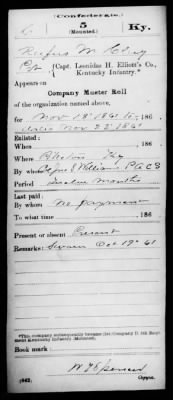 (Confederate.)
5
(Mounted.)
Ky.
Rufus M
(Capt. Leonidas H. Elliott's Co.,
Kentucky Infantry.*
Appears on
Company Muster Roll
of the organization named above,
for Nov 18 1861 to
Nov 22 1861
Enlisted:
When , 186
Where Ky
By whom Williams P A C S
Period Twelve Months
Last paid:
By whom No payment
To what time , 186
Present or absent Present
Remarks: Sworn Oct 19 61
*This company subsequently became Company D 5th Regiment Kentucky Infantry (Mounted).
Book mark:
(642)
Copyist.